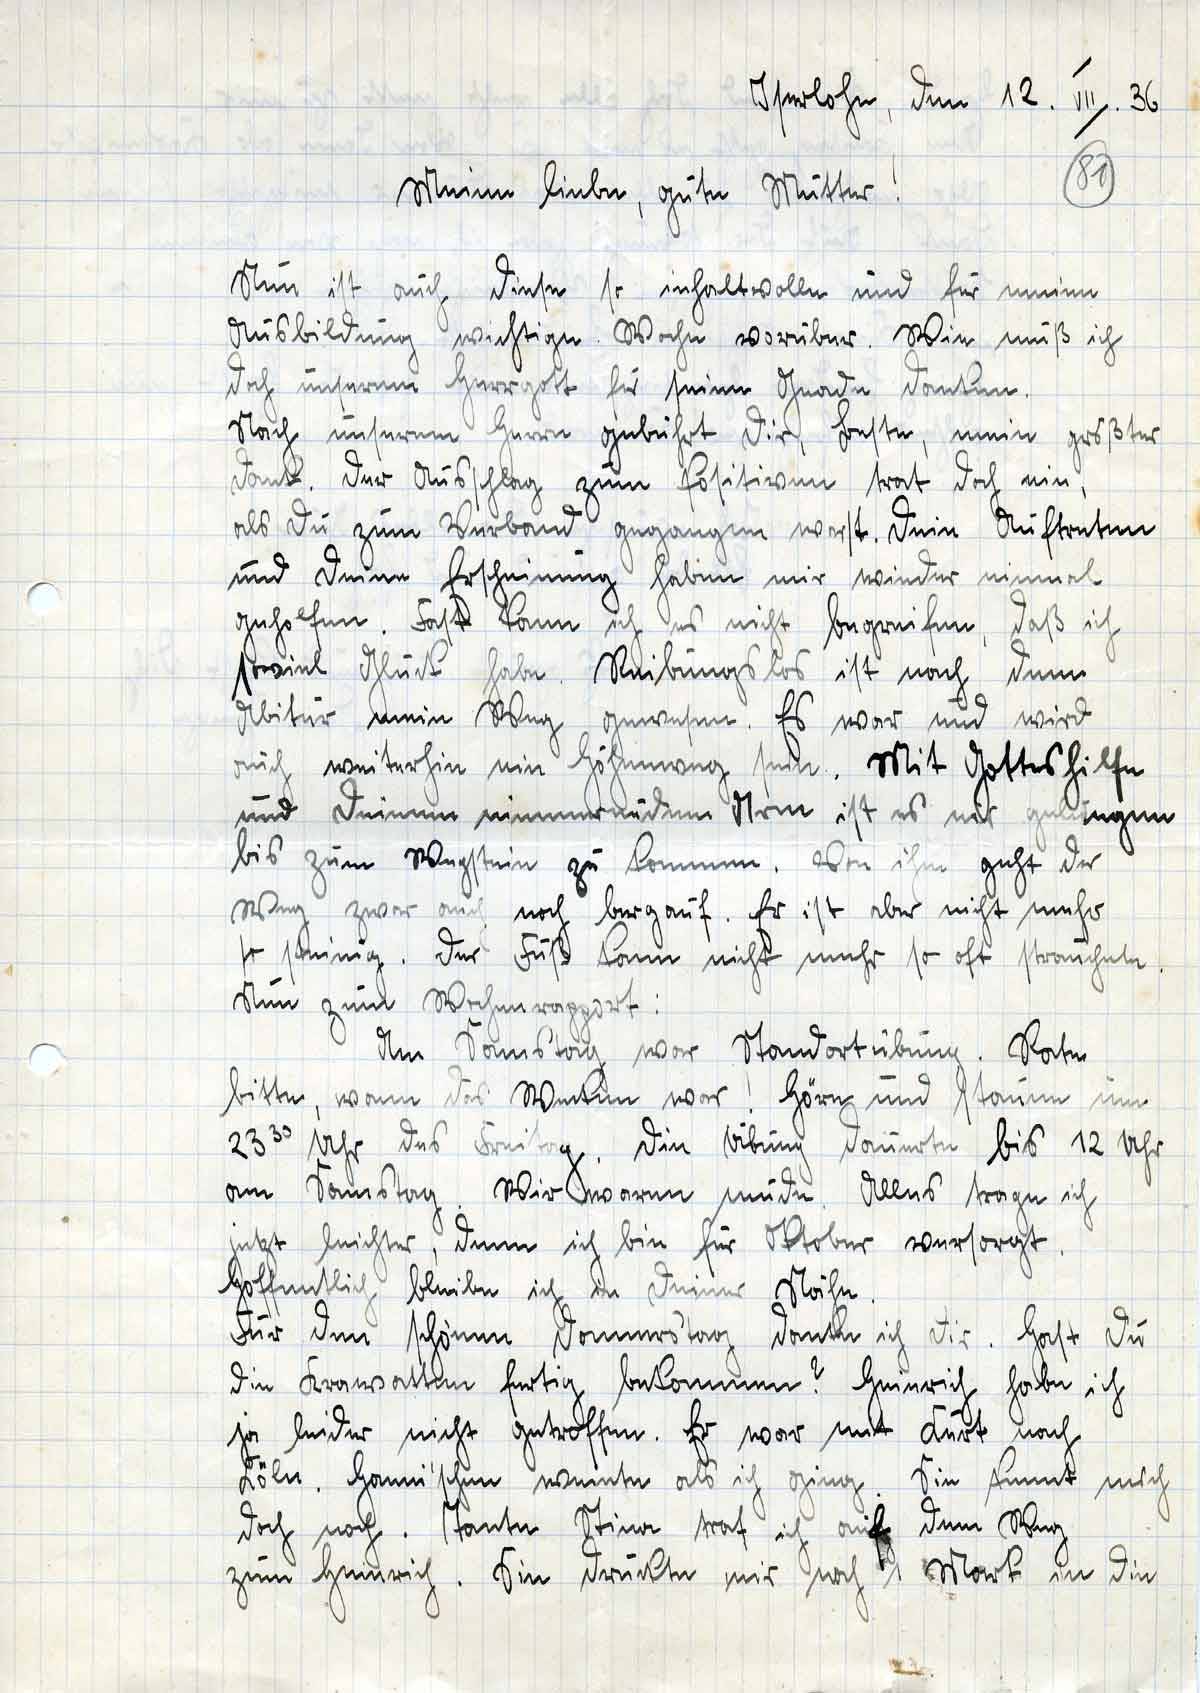 Iserlohn, den 12. VII. 36
81
Meine liebe, gute Mutter!
Nun ist auch diese so inhaltvolle und für meine
Ausbildung wichtige Woche vorüber. Wie muß ich
doch unserem Herrgott für seine Gnade danken.
Nach unserem Herrn gebührt Dir, Beste, mein größter
Dank. Der Ausschlag zum Positiven trat doch ein,
als Du zum Verband gegangen warst. Dein Auftreten
und Deine Erscheinung haben mir wieder einmal
geholfen. Fast kann ich es nicht begreifen, daß ich
soviel Glück habe. Reibungslos ist nach dem
Abitur mein Weg gewesen. Es war und wird
auch weiterhin ein Höhenweg sein. Mit Gotteshilfe
und Deinem nimmermüden Arm ist es mir gelungen
bis zum Wegstein zu kommen. Von ihm geht der
Weg zwar auch noch bergauf. Er ist aber nicht mehr
so steinig. Der Fuß kann nicht mehr so oft straucheln.
Nun zum Wochenrapport:
Am Samstag war Standortübung. Rate
bitte, wann das Wecken war! Höre und staune um
23³⁰ Uhr des Freitag. Die Übung dauerte bis 12 Uhr
am Samstag. Wir waren müde. Alles trage ich
jetzt leichter, denn ich bin für Oktober versorgt.
Hoffentlich bleibe ich in Deiner Nähe.
Für den schönen Donnerstag danke ich Dir. Hast Du
die Krawatten fertig bekommen? Heinrich habe ich
ja leider nicht getroffen. Er war mit Kurt nach
Köln. Hanni'schen weinte als ich ging. Sie kennt mich
doch noch. Tante Stina traf ich auf dem Weg
zum Heinrich. Sie drückte mir noch 1 Mark in die